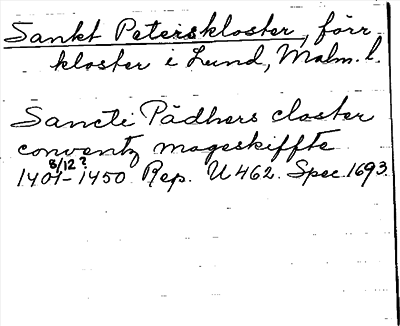 Sankt Peterskloster, förr
kloster i Lund, Malm. l.
Sancti Pädhers closter
conventz mageskiffte
8/12?
1401-1450 Rep. U 462. Spec. 1693.